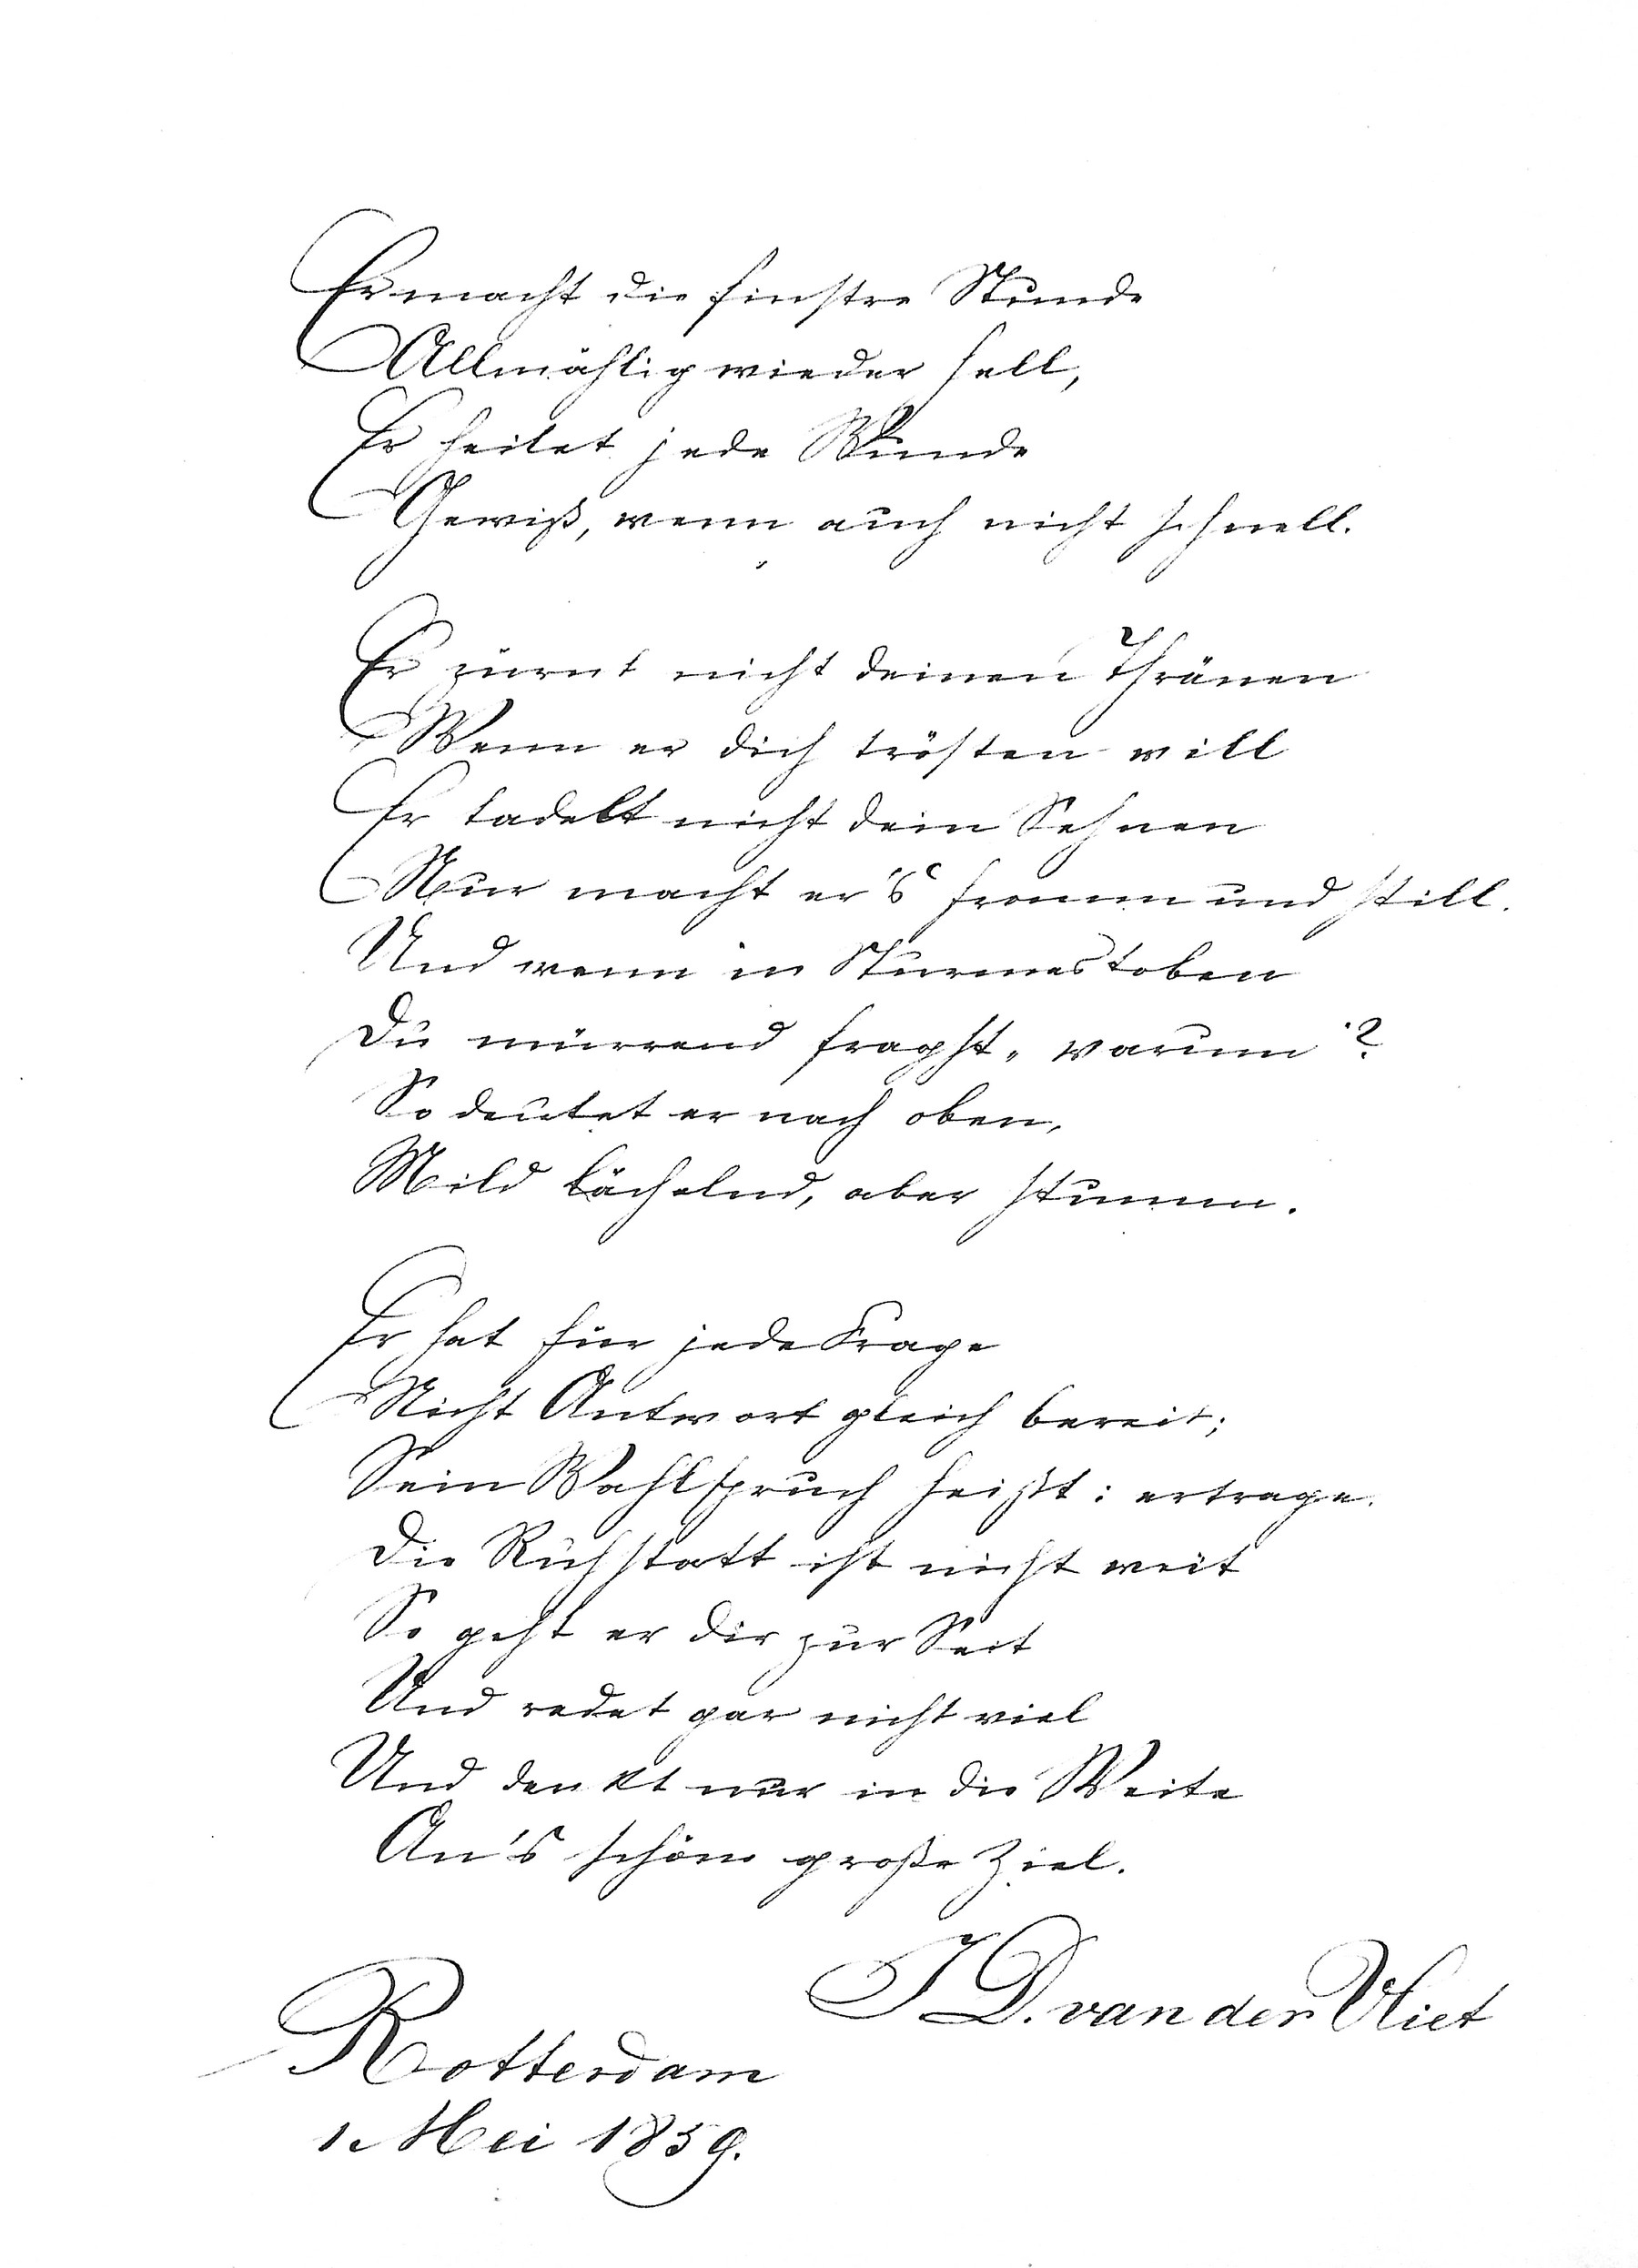 Er macht die finstre Stunde
Allmählig wieder hell,
Er heilet jede Wunde
Gewiß, wenn auch nicht schnell.
Er zürnt nicht deinen Thränen
Wenn er dich trösten will
Er tadelt nicht dein Sehnen
Nur macht er's fromm und still.
Und wenn in Sturmes toben
Du murrend fragst, warum?
So deutet er nach oben,
Mild lächelnd, aber stumm.
Er hat für jede Frage
Nicht Antwort gleich bereit;
Sein Wahlspruch heißt: ertrage.
Die Ruhstatt ist nicht weit
So geht er dir zur Seit
Und redet gar nicht viel
Und denkt nur in die Weite
An's schöne große Ziel.
J D. van der Vliet
Rotterdam
1 Mei 1859.